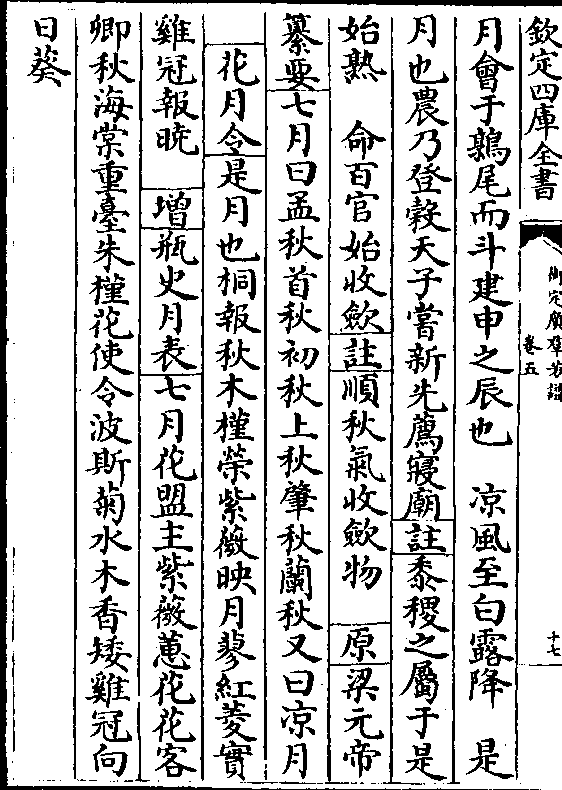 欽定四庫全書
御定廣羣芳譜
卷五
十七
月會于鶉尾而斗建申之辰也　凉風至白露降　是
月也農乃登穀天子嘗新先薦寢廟註黍稷之屬于是
始熟　命百官始收斂註順秋氣收斂物　原梁元帝
纂要七月曰孟秋首秋初秋上秋肇秋蘭秋又曰凉月
花月令是月也桐報秋木槿榮紫薇映月蓼紅菱實
雞冠報曉　增瓶史月表七月花盟主紫薇蕙花花客
卿秋海棠重臺朱槿花使令波斯菊水木香矮雞冠向
日葵